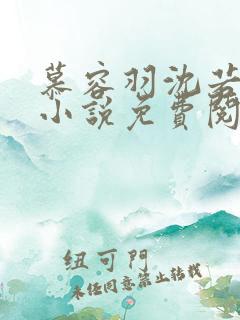 慕容羽沈若
小說免費閱
纽可門
未经同意禁止转载